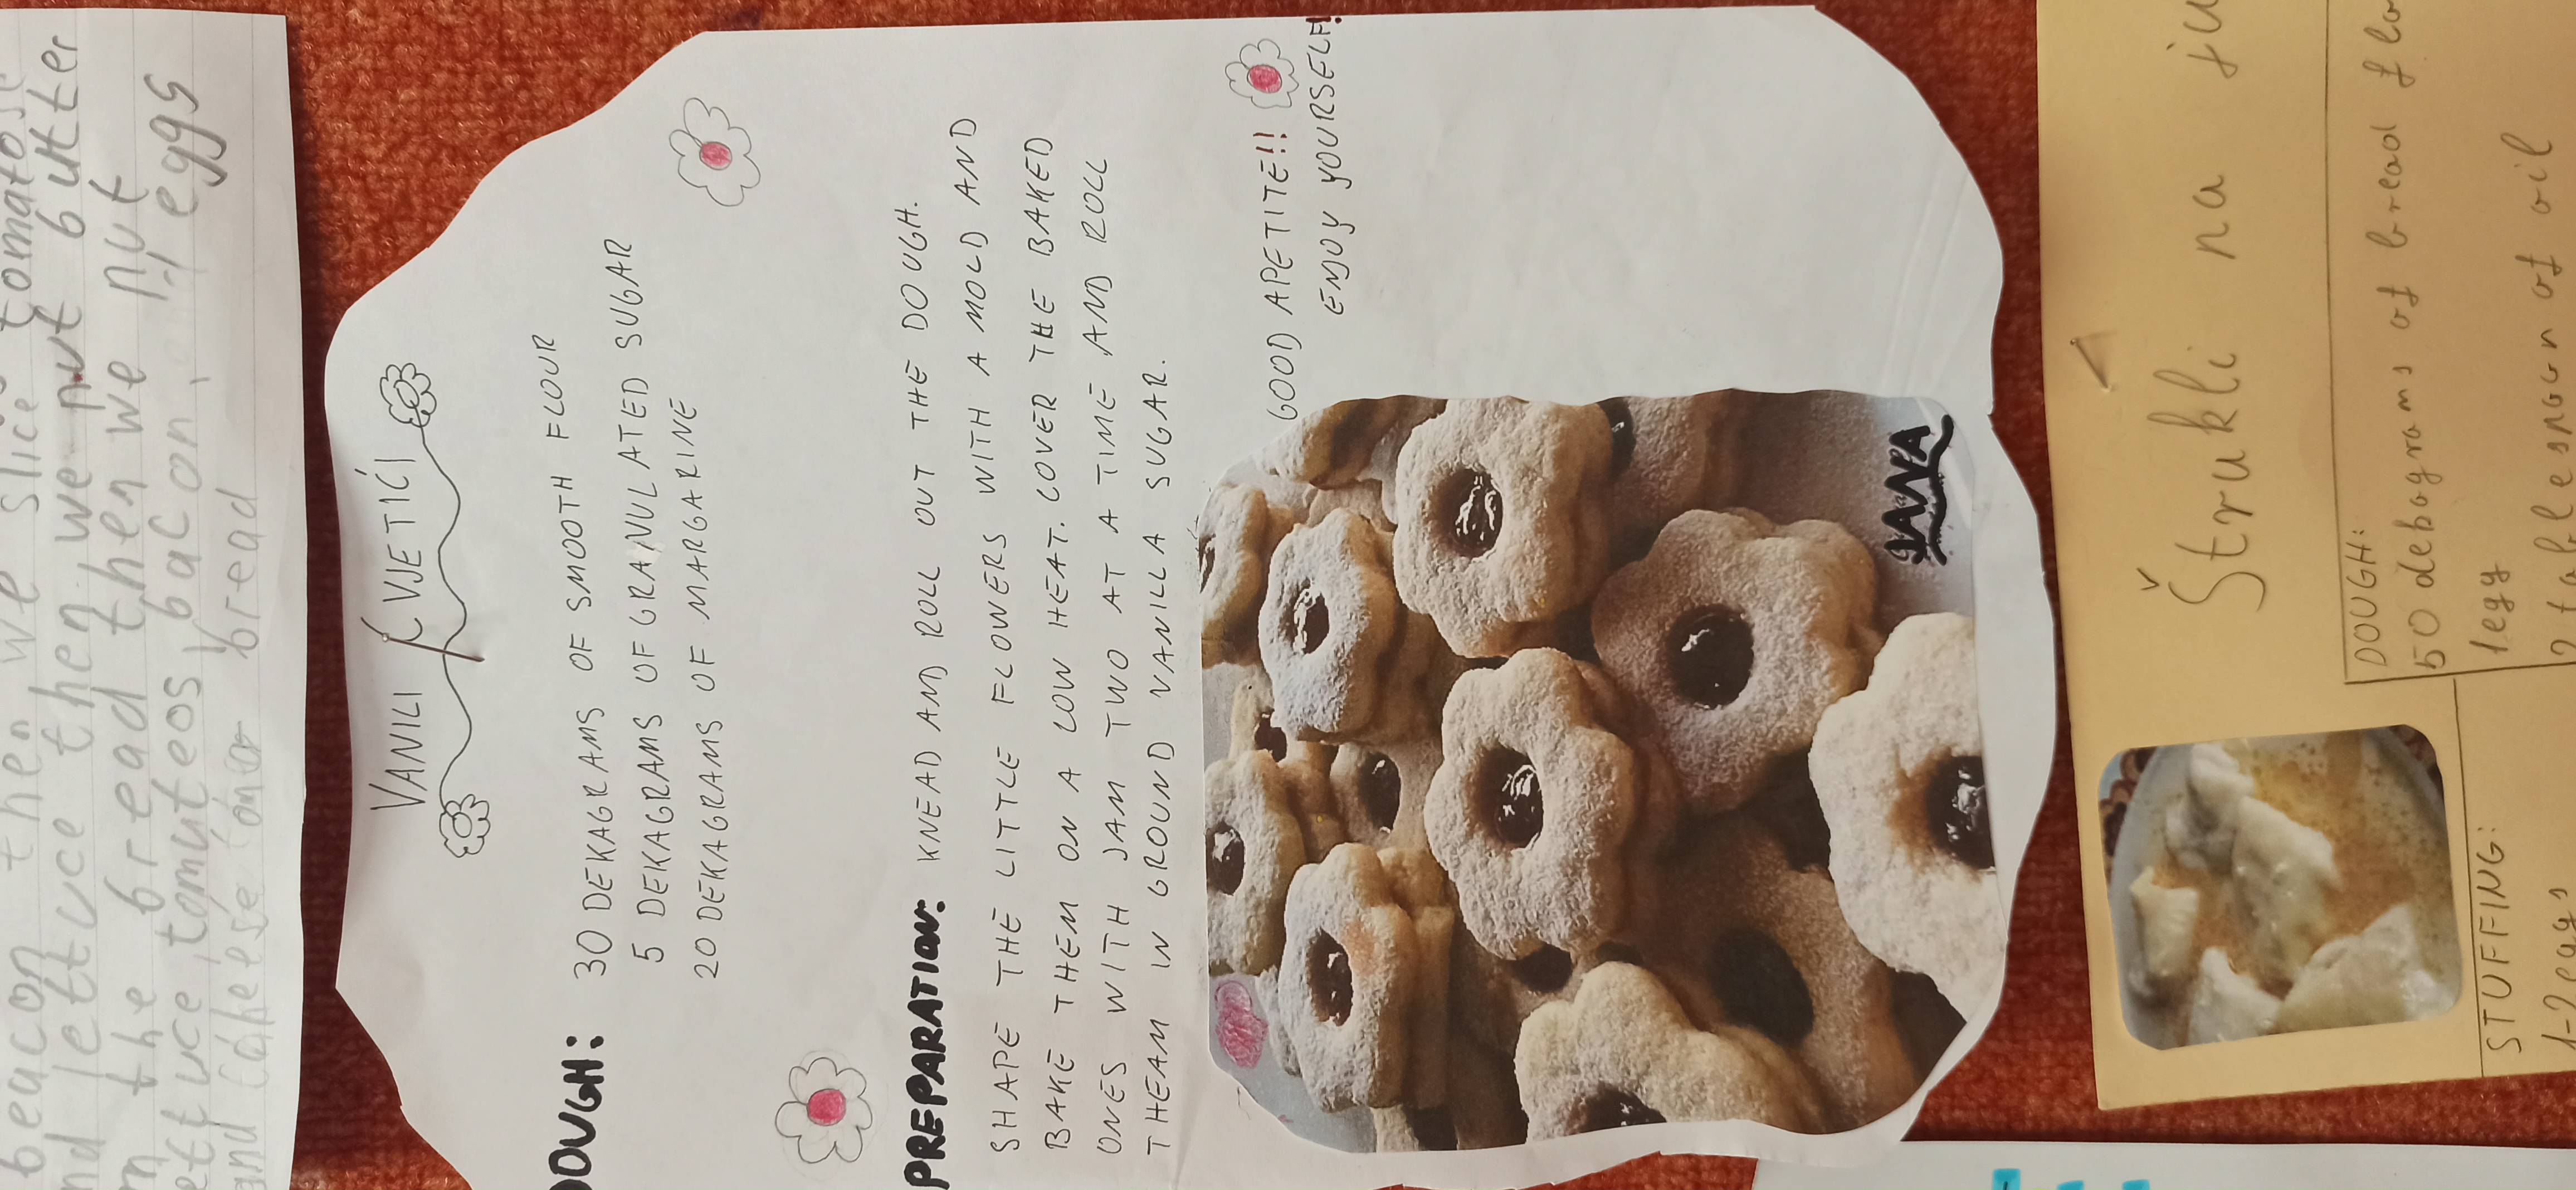 beacon then we slice tomatos
nd lettuce then we put butter
n the bread then we put
ettuce, tomuteos, bacon, eggs
and cheese on bread
VANILI CVJETIĆI
DOUGH: 30 DEKAGRAMS OF SMOOTH FLOUR
5 DEKAGRAMS OF GRANULATED SUGAR
20 DEKAGRAMS OF MARGARINE
PREPARATION: KNEAD AND ROLL OUT THE DOUGH.
SHAPE THE LITTLE FLOWERS WITH A MOLD AND
BAKE THEM ON A LOW HEAT. COVER THE BAKED
ONES WITH JAM TWO AT A TIME AND ROLL
THEAM IN GROUND VANILLA SUGAR.
GOOD APETITE!!
ENJOY YOURSELF!
JANA
Štrukli na ju
DOUGH:
50 debagrams of bread flo
1 egg
2 tablespoon of oil
STUFFING:
1-2 eggs